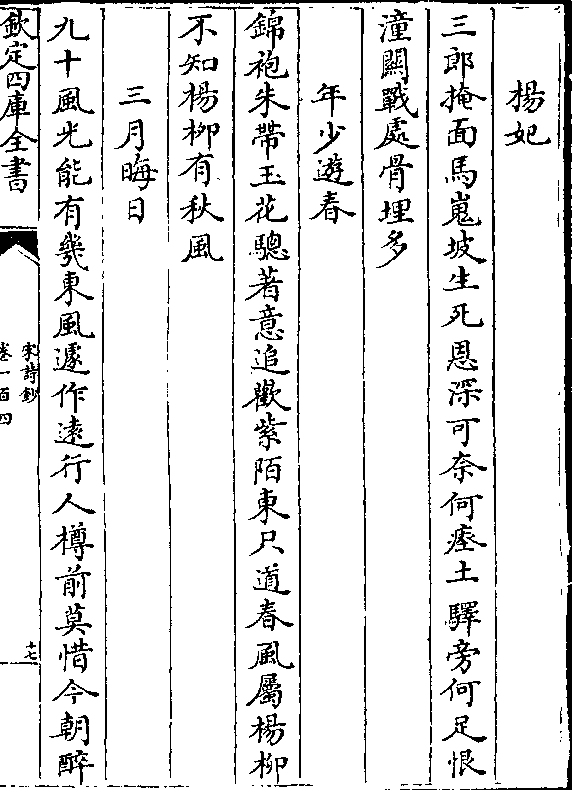 楊妃
三郎掩面馬嵬坡生死恩深可奈何瘞土驛旁何足恨
潼關戰處骨埋多
年少遊春
錦袍朱帶玉花驄著意追歡紫陌東只道春風屬楊柳
不知楊柳有秋風
三月晦日
九十風光能有幾東風遽作遠行人樽前莫惜今朝醉
欽定四庫全書
宋詩鈔
卷一百四
十七